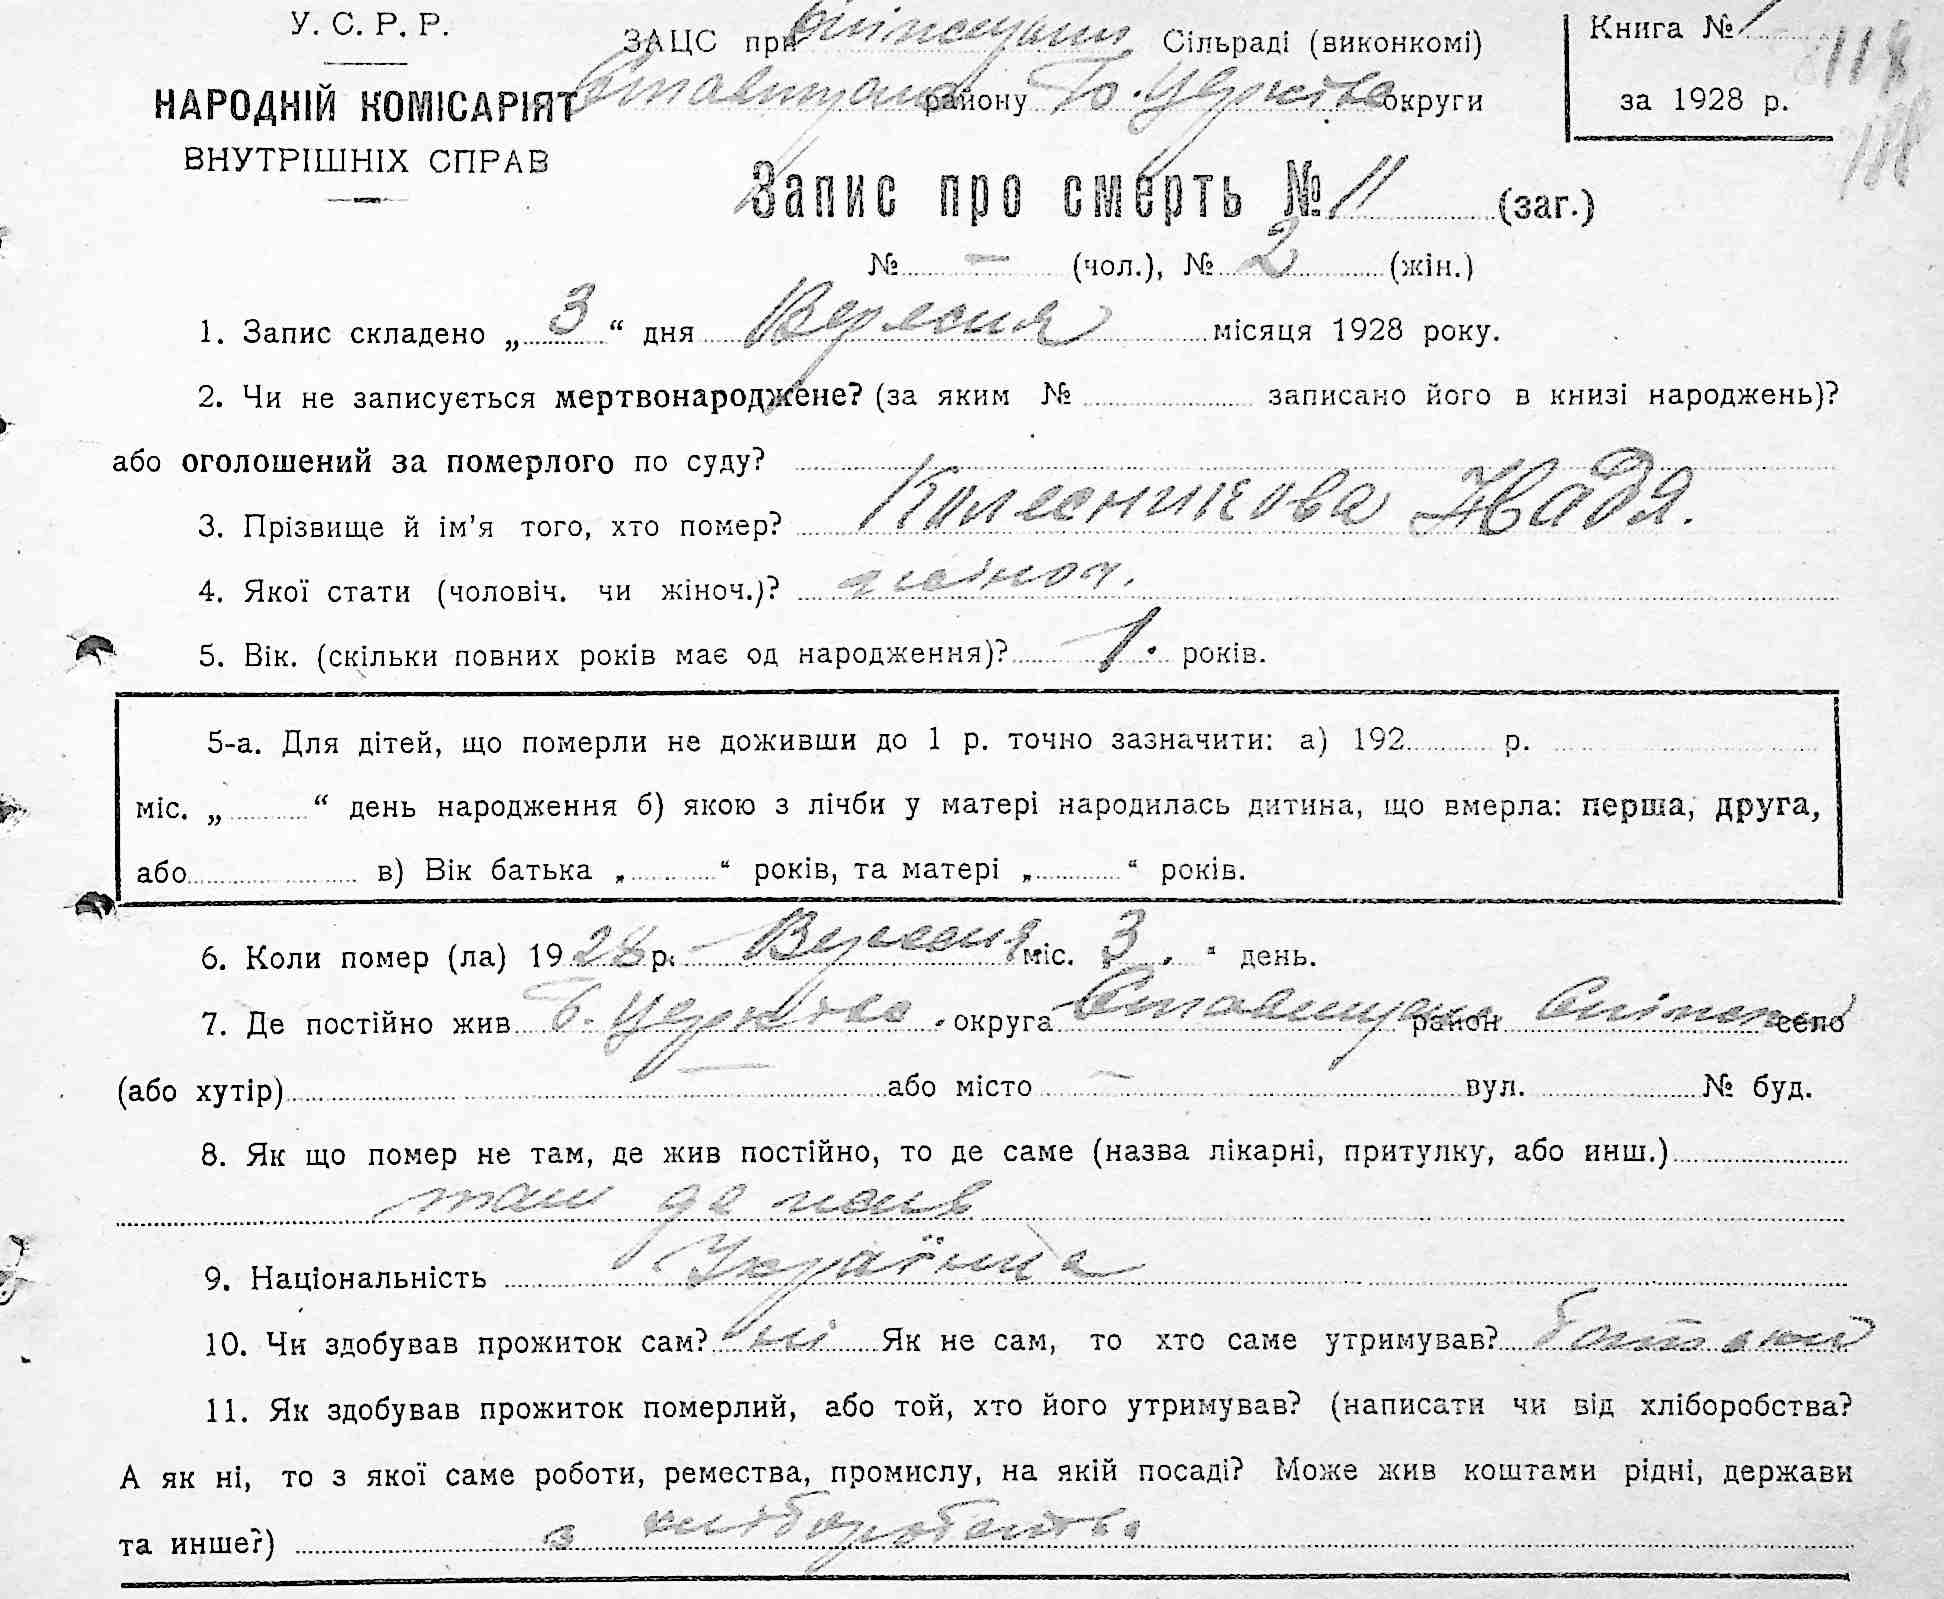 У. С. Р. Р.
НАРОДНІЙ КОМІСАРІЯТ
ВНУТРІШНІХ СПРАВ
ЗАЦС при Сільраді (виконкомі)
району Б. Церківс округи
Книга № 1
за 1928 р.
118
188
Запис про смерть № 11 (заг.)
№ — (чол.), № 2 (жін.)
1. Запис складено „ 3 “ дня Вересня місяця 1928 року.
2. Чи не записується мертвонароджене? (за яким № записано його в книзі народжень)?
або оголошений за померлого по суду?
3. Прізвище й ім’я того, хто помер? Колесникова Надя.
4. Якої стати (чоловіч. чи жіноч.)? жіноч.
5. Вік. (скільки повних років має од народження)? 1. років.
5-а. Для дітей, що померли не доживши до 1 р. точно зазначити: а) 192 р.
міс. „ “ день народження б) якою з лічби у матері народилась дитина, що вмерла: перша, друга,
або в) Вік батька „ “ років, та матері „ “ років.
6. Коли помер (ла) 1928 р. Вересня міс. 3. “ день.
7. Де постійно жив Б. Церківс. округа район село
(або хутір) — або місто — вул. № буд.
8. Як що помер не там, де жив постійно, то де саме (назва лікарні, притулку, або инш.)
там де
9. Національність Українка
10. Чи здобував прожиток сам? ні Як не сам, то хто саме утримував? батьки
11. Як здобував прожиток померлий, або той, хто його утримував? (написати чи від хліборобства?
А як ні, то з якої саме роботи, ремества, промислу, на якій посаді? Може жив коштами рідні, держави
та инше?) з хліборобства